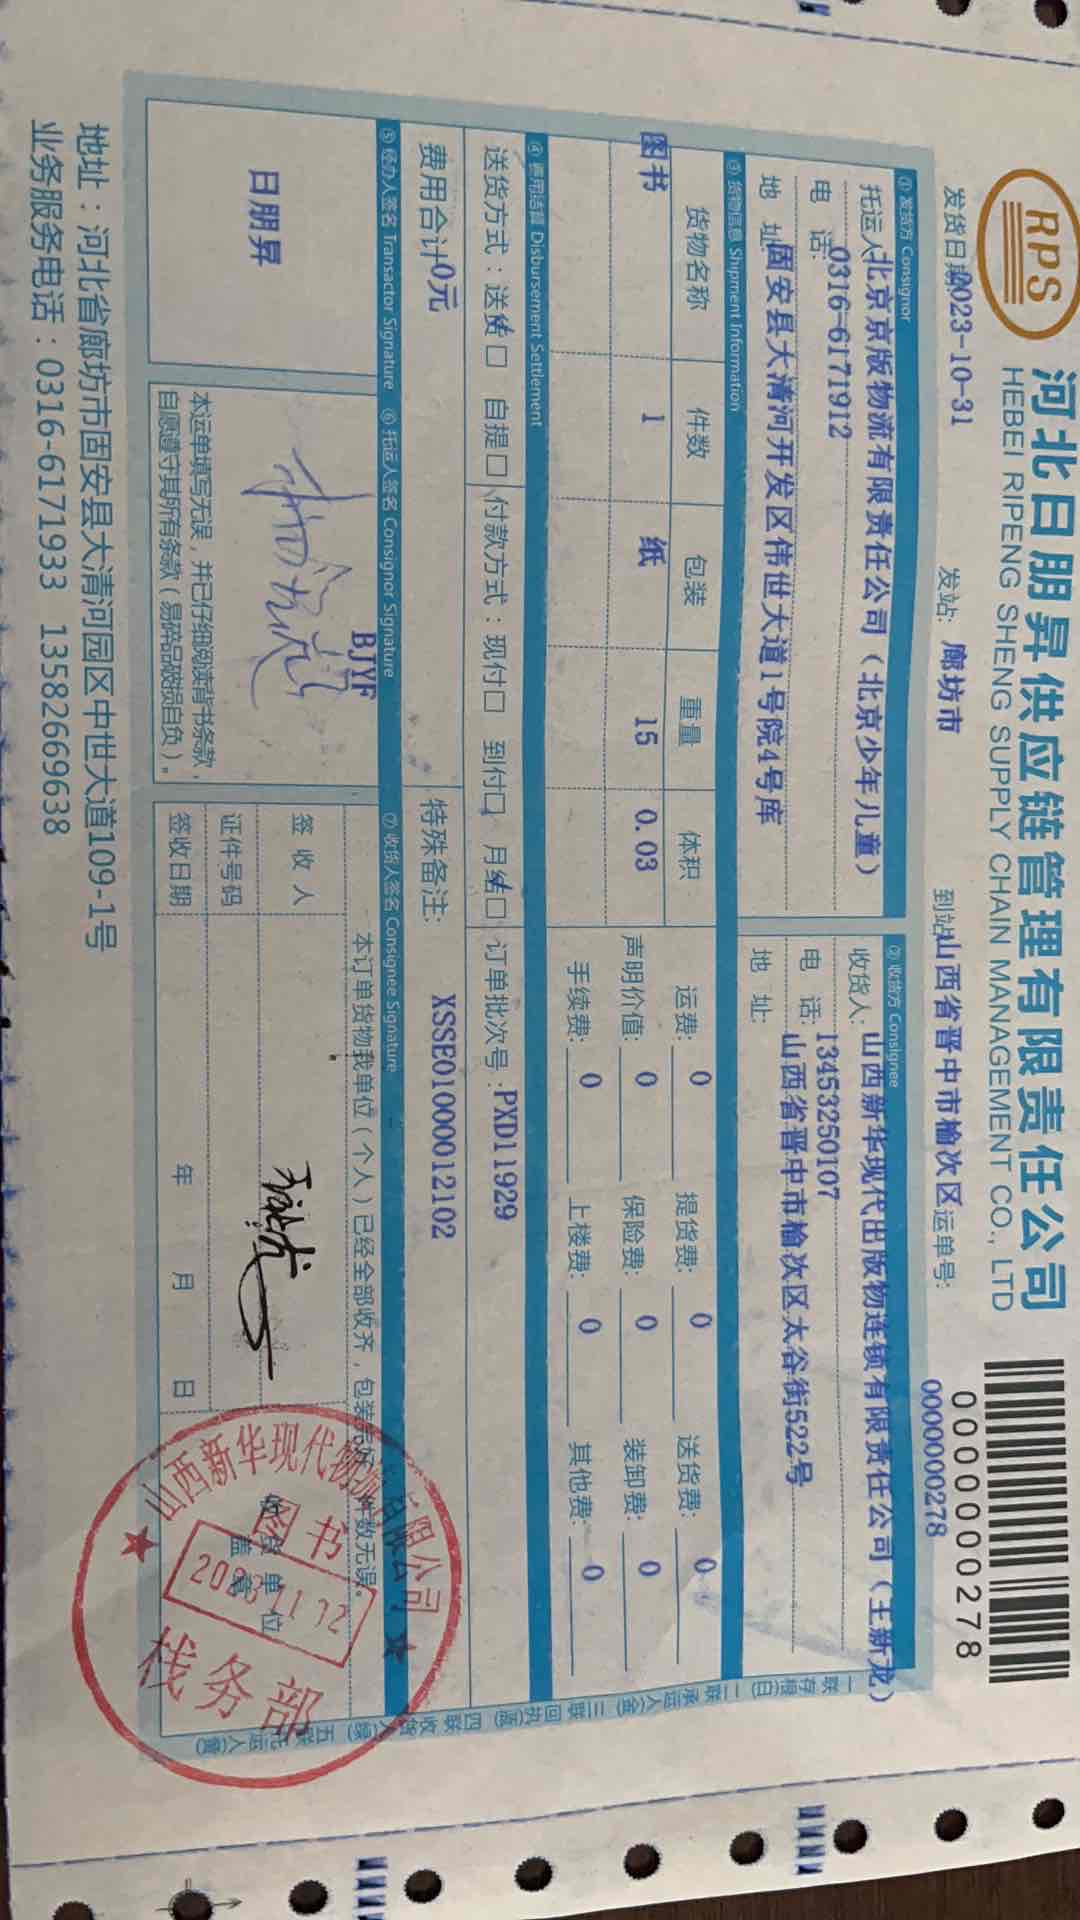 RPS
河北日朋昇供应链管理有限责任公司
HEBEI RIPENG SHENG SUPPLY CHAIN MANAGEMENT CO., LTD
0000000278
发货日期2023-10-31 发站: 廊坊市 到站山西省晋中市榆次区运单号: 0000000278
① 发货方 Consignor
托运人北京京版物流有限责任公司（北京少年儿童）
电 话:0316-6171912
地 址固安县大清河开发区伟世大道1号院4号库
② 收货方 Consignee
收货人: 山西新华现代出版物连锁有限责任公司（王新龙）
电 话: 13453250107
地 址: 山西省晋中市榆次区太谷街522号
③ 货物信息 Shipment Information
货物名称 件数 包装 重量 体积
图书 1 纸 15 0.03
运费: 0 提货费: 0 送货费: 0
声明价值: 0 保险费: 0 装卸费: 0
手续费: 0 上楼费: 0 其他费: 0
④ 费用结算 Disbursement Settlement
送货方式：送货□ 自提□ 付款方式：现付□ 到付□ 月结□ 订单批次号:PXD11929
费用合计0元 特殊备注: XSSE01000012102
⑤ 经办人签名 Transactor Signature ⑥ 托运人签名 Consignor Signature ⑦ 收货人签名 Consignee Signature
日朋昇
BJYF
本运单填写无误，并已仔细阅读背书条款，
自愿遵守其所有条款（易碎品破损自负）。
本订单货物我单位（个人）已经全部收齐，包装完好，件数无误。
签 收 人
证件号码
签收日期 年 月 日
收货单位
盖章
山西新华现代物流有限公司
图书
2023 11 12
栈务部
一联存根(白) 二联承运人(金) 三联回执(蓝) 四联收货人(绿) 五联托运人(黄)
地址：河北省廊坊市固安县大清河园区中世大道109-1号
业务服务电话：0316-6171933 13582669638